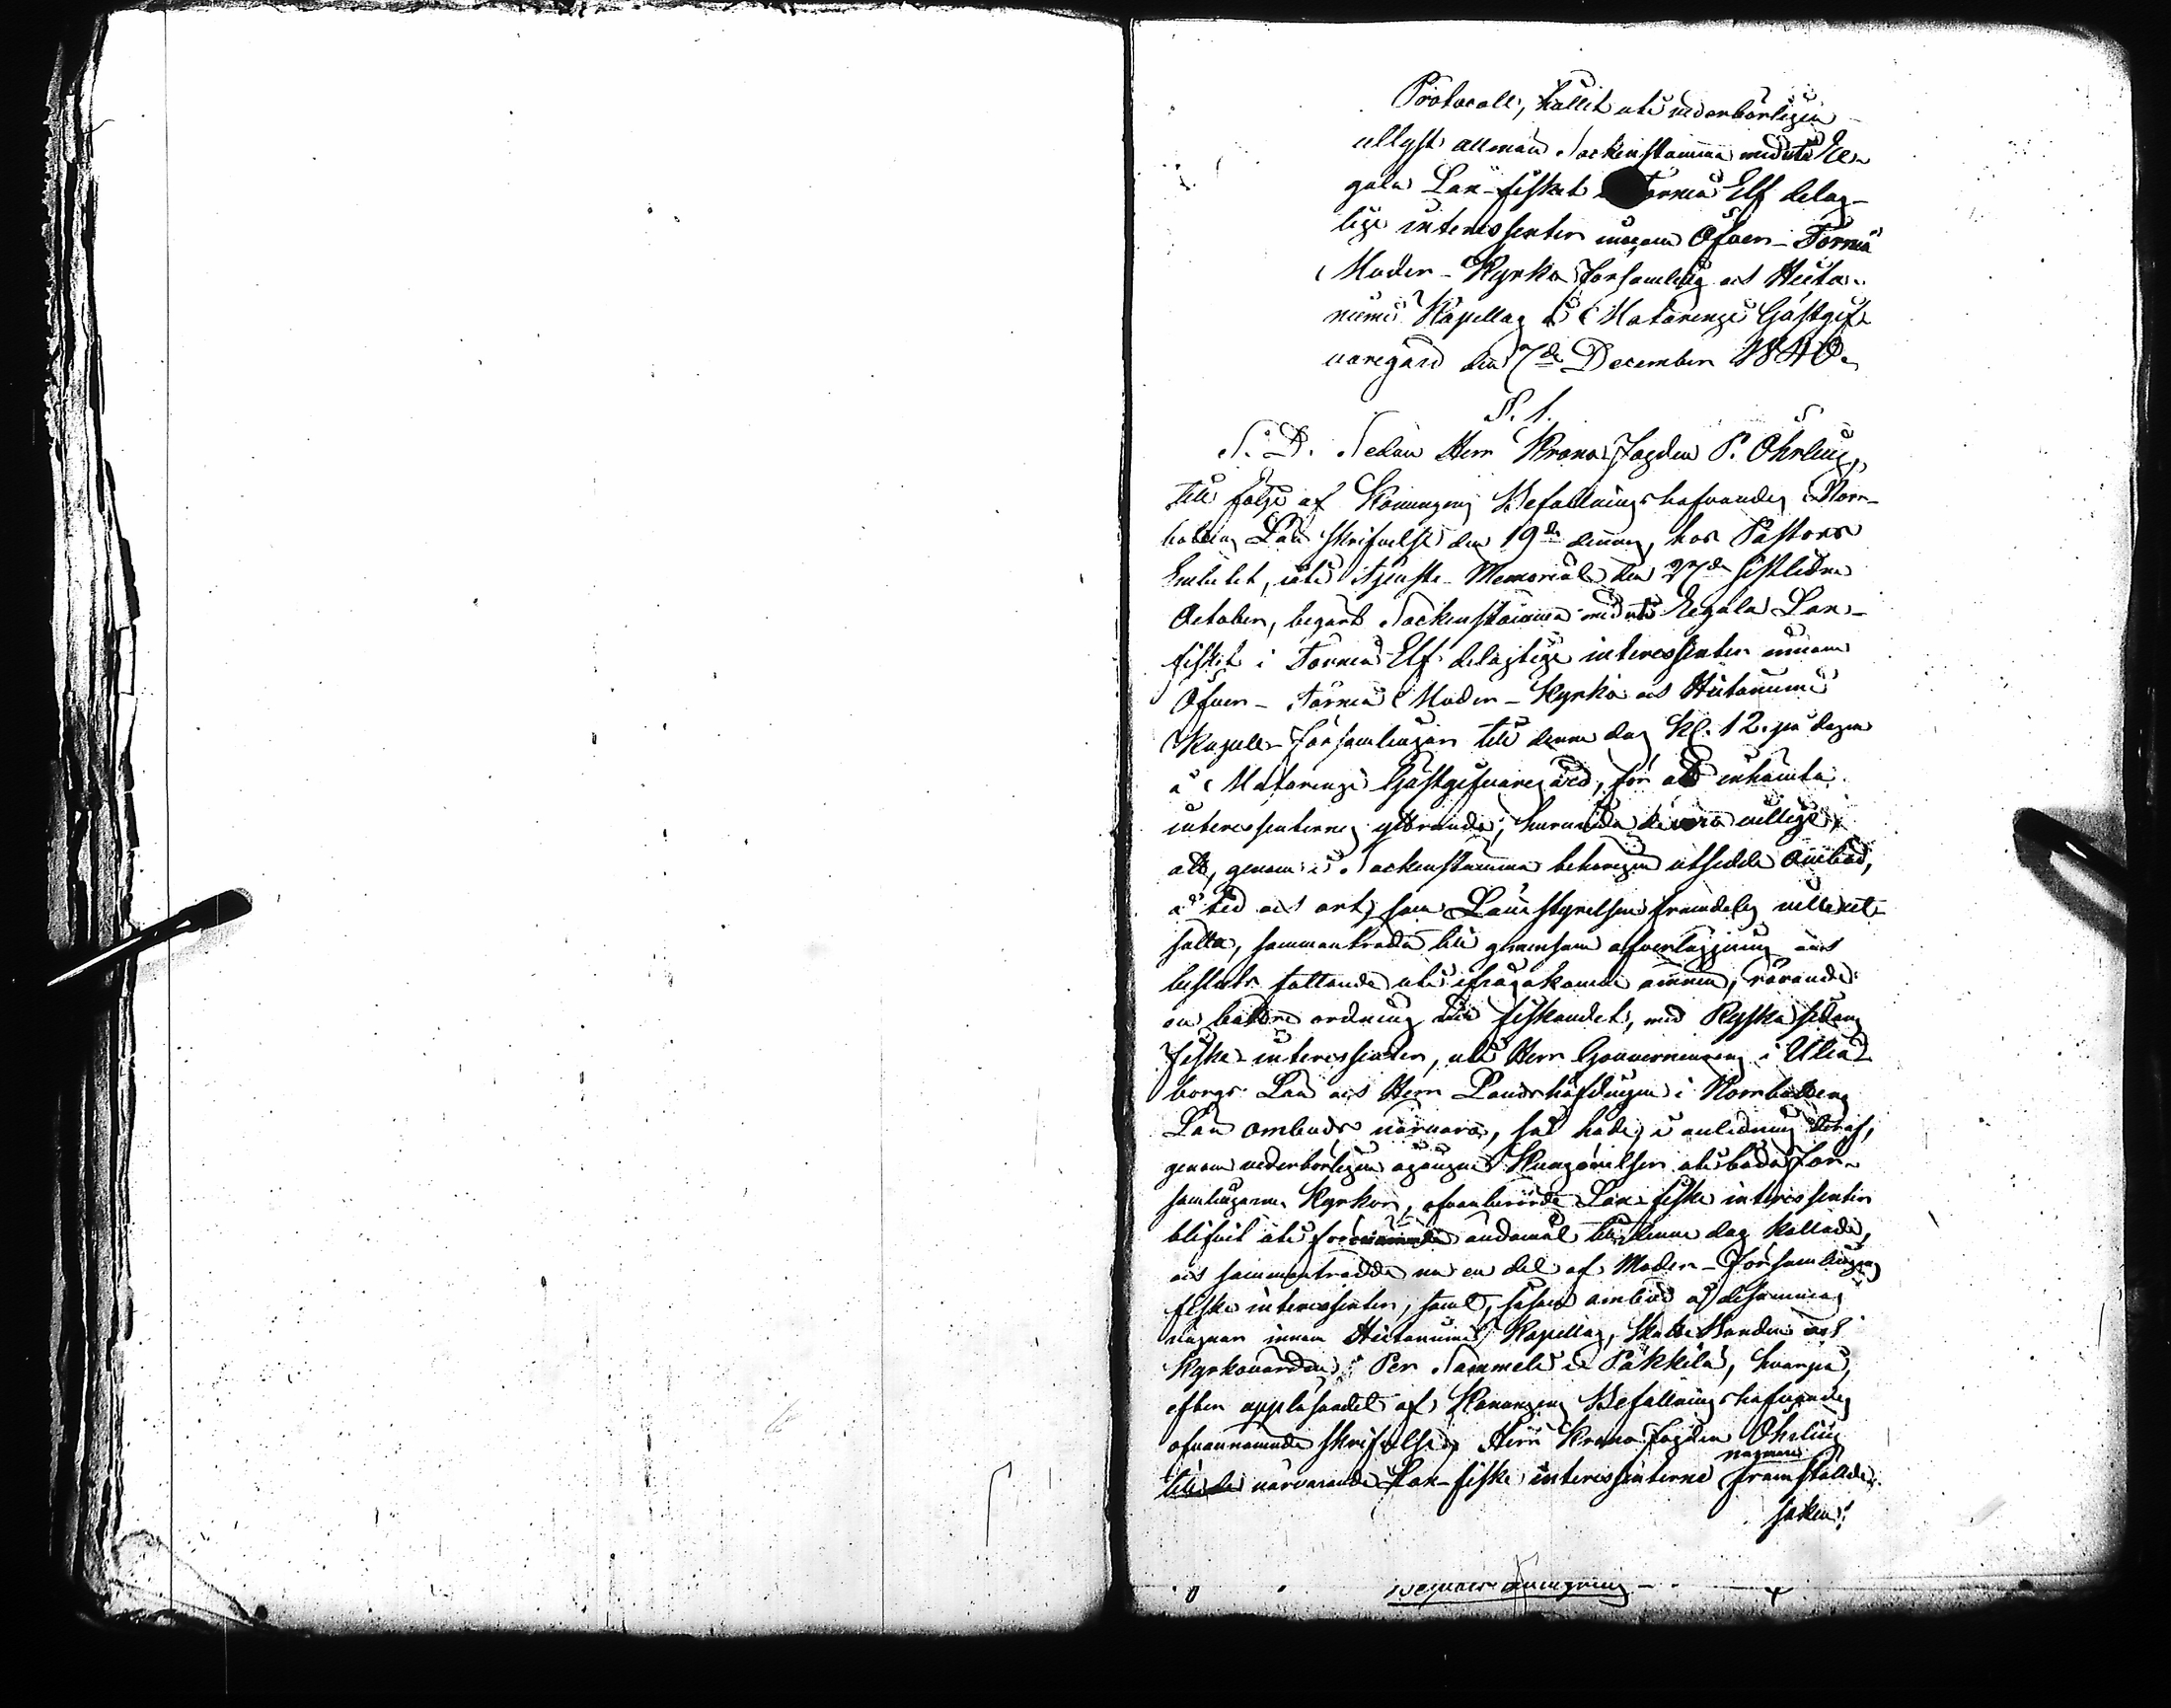 Protocoll, hållit uti vederbörligen
utlyst allmän Sockenstämma med uti Re-
gala Lax-fisket i Torneå Elf delag-
tige interessenter inom Öfver-Torneå
Moder-Kyrko församling och Hieta-
niemi Kapellag å Matarengi Gästgif-
varegård den 7de December 1840.
S. 1.
S. D. Sedan Herr Krono Fogden P. Öhrling,
till följe af Konungens Befallningshafvandes i Norr-
bottens Län skrifvelse den 19de dennes, hos Pastors
Embetet, uti Tjenste-Memorial den 27de sistlidne
October, begärt Sockenstämma med uti Regala Lax-
fisket i Torneå Elf delagtige interessenter innom
Öfver-Torneå Moder-Kyrko och Hietaniemi
Kapell-Församlingar till denne dag Kl. 12. på dagen
å Matarengi Gästgifvaregård, för att inhämta
interessenternes yttrande, huruvida de voro villige
att, genom å Sockenstämma behörigen utsedde ombud,
å tid och ort, som Länestyrelsen framdeles ville ut-
sätta, sammanträda till gemensam öfverläggning och
besluts fattande uti ifrågakomne ämnen, rörande
en bättre ordning vid fiskandet, med Ryska sidans
Fiske-interessenter, uti Herr Gouverneurens i Uleå-
borgs Län och Herr Landshöfdingen i Norrbottens
Län ombuds närvaro, så hade, i anledning deraf,
genom vederbörligen utgången Kungörelser uti båda För-
samlingarnes Kyrkor, ofvanberörde Lax-fiske interessenter
blifvit uti ändamål till denne dag kallade,
och sammanträdde nu en del af Moder-Församlingens
fiske interessenter, samt, såsom ombud af desamma
någras innom Hietaniemi Kapellag, Skatte Bonden och
Kyrkovärden Per Sammeli i Päkkilä, hvarpå,
efter uppläsandet af Konungens Befallningshafvandes
ofvannämnde skrifvelse, Herr Krono Fogden Öhrling
närvarande Lax-fiske interessenterne framställde
saken: